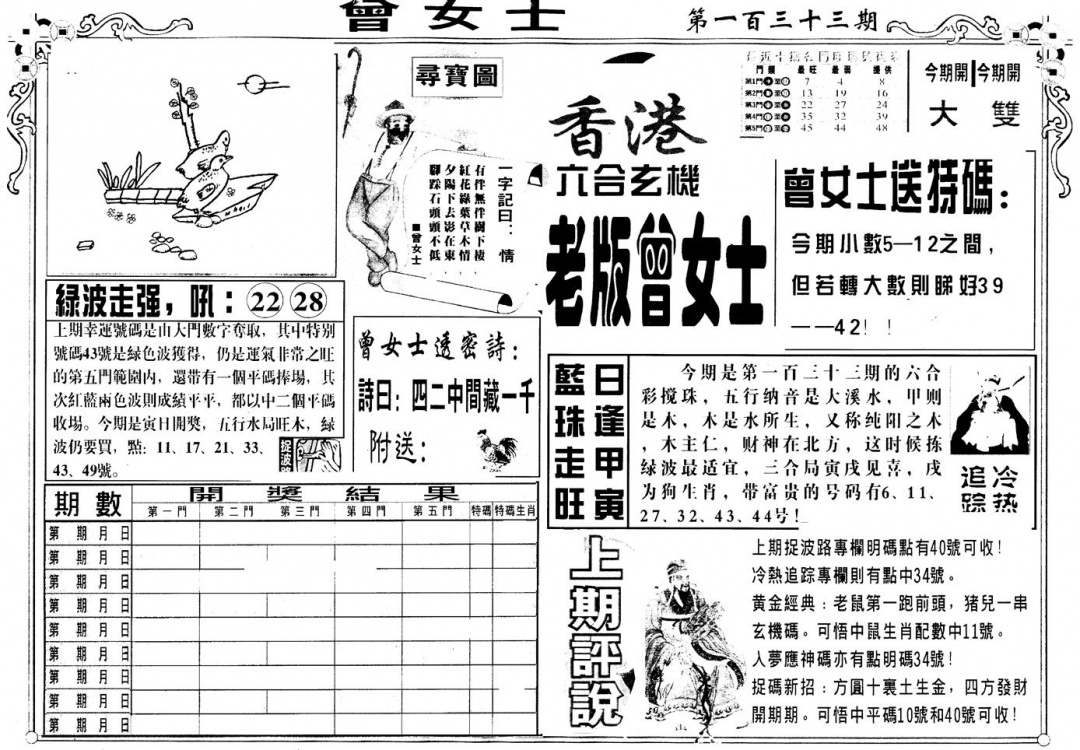 曾女士
第一百三十三期
尋寶圖
一字記曰：情
有伴無伴樹下棲
紅花綠葉草木情
夕陽下去影在東
腳踩石頭頭不低
■曾女士
香港
六合玄機
老版曾女士
門類 最旺 最弱 提供
第1門 7 4 8
第2門 13 19 16
第3門 22 27 24
第4門 35 32 39
第5門 45 44 48
今期開 今期開
大 雙
曾女士送特碼：
今期小數5—12之間，
但若轉大數則睇好39
——42！！
綠波走强，吼：22 28
上期幸運號碼是由大門數字奪取，其中特别
號碼43號是綠色波獲得，仍是運氣非常之旺
的第五門範圍内，還带有一個平碼捧場，其
次紅藍兩色波則成績平平，都以中二個平碼
收場。今期是寅日開獎，五行水局旺木，綠
波仍要買，點：11、17、21、33、
43、49號。
捉波路
曾女士透密詩：
詩曰：四二中間藏一千
附送：
藍珠走旺
日逢甲寅
今期是第一百三十三期的六合
彩搅珠，五行纳音是大溪水，甲则
是木，木是水所生，又称纯阳之木
，木主仁，财神在北方，这时候拣
绿波最适宜，三合局寅戌见喜，戌
为狗生肖，带富贵的号码有6、11、
27、32、43、44号！
冷热
追踪
期數 開獎結果
第一門 第二門 第三門 第四門 第五門 特碼 特碼生肖
第 期 月 日
第 期 月 日
第 期 月 日
第 期 月 日
第 期 月 日
第 期 月 日
第 期 月 日
第 期 月 日
第 期 月 日
上期評說
上期捉波路專欄明碼點有40號可收！
冷熱追踪專欄則有點中34號。
黄金經典：老鼠第一跑前頭，猪兒一串
玄機碼。可悟中鼠生肖配數中11號。
人夢應神碼亦有點明碼34號！
捉碼新招：方圓十裏土生金，四方發財
開期期。可悟中平碼10號和40號可收！